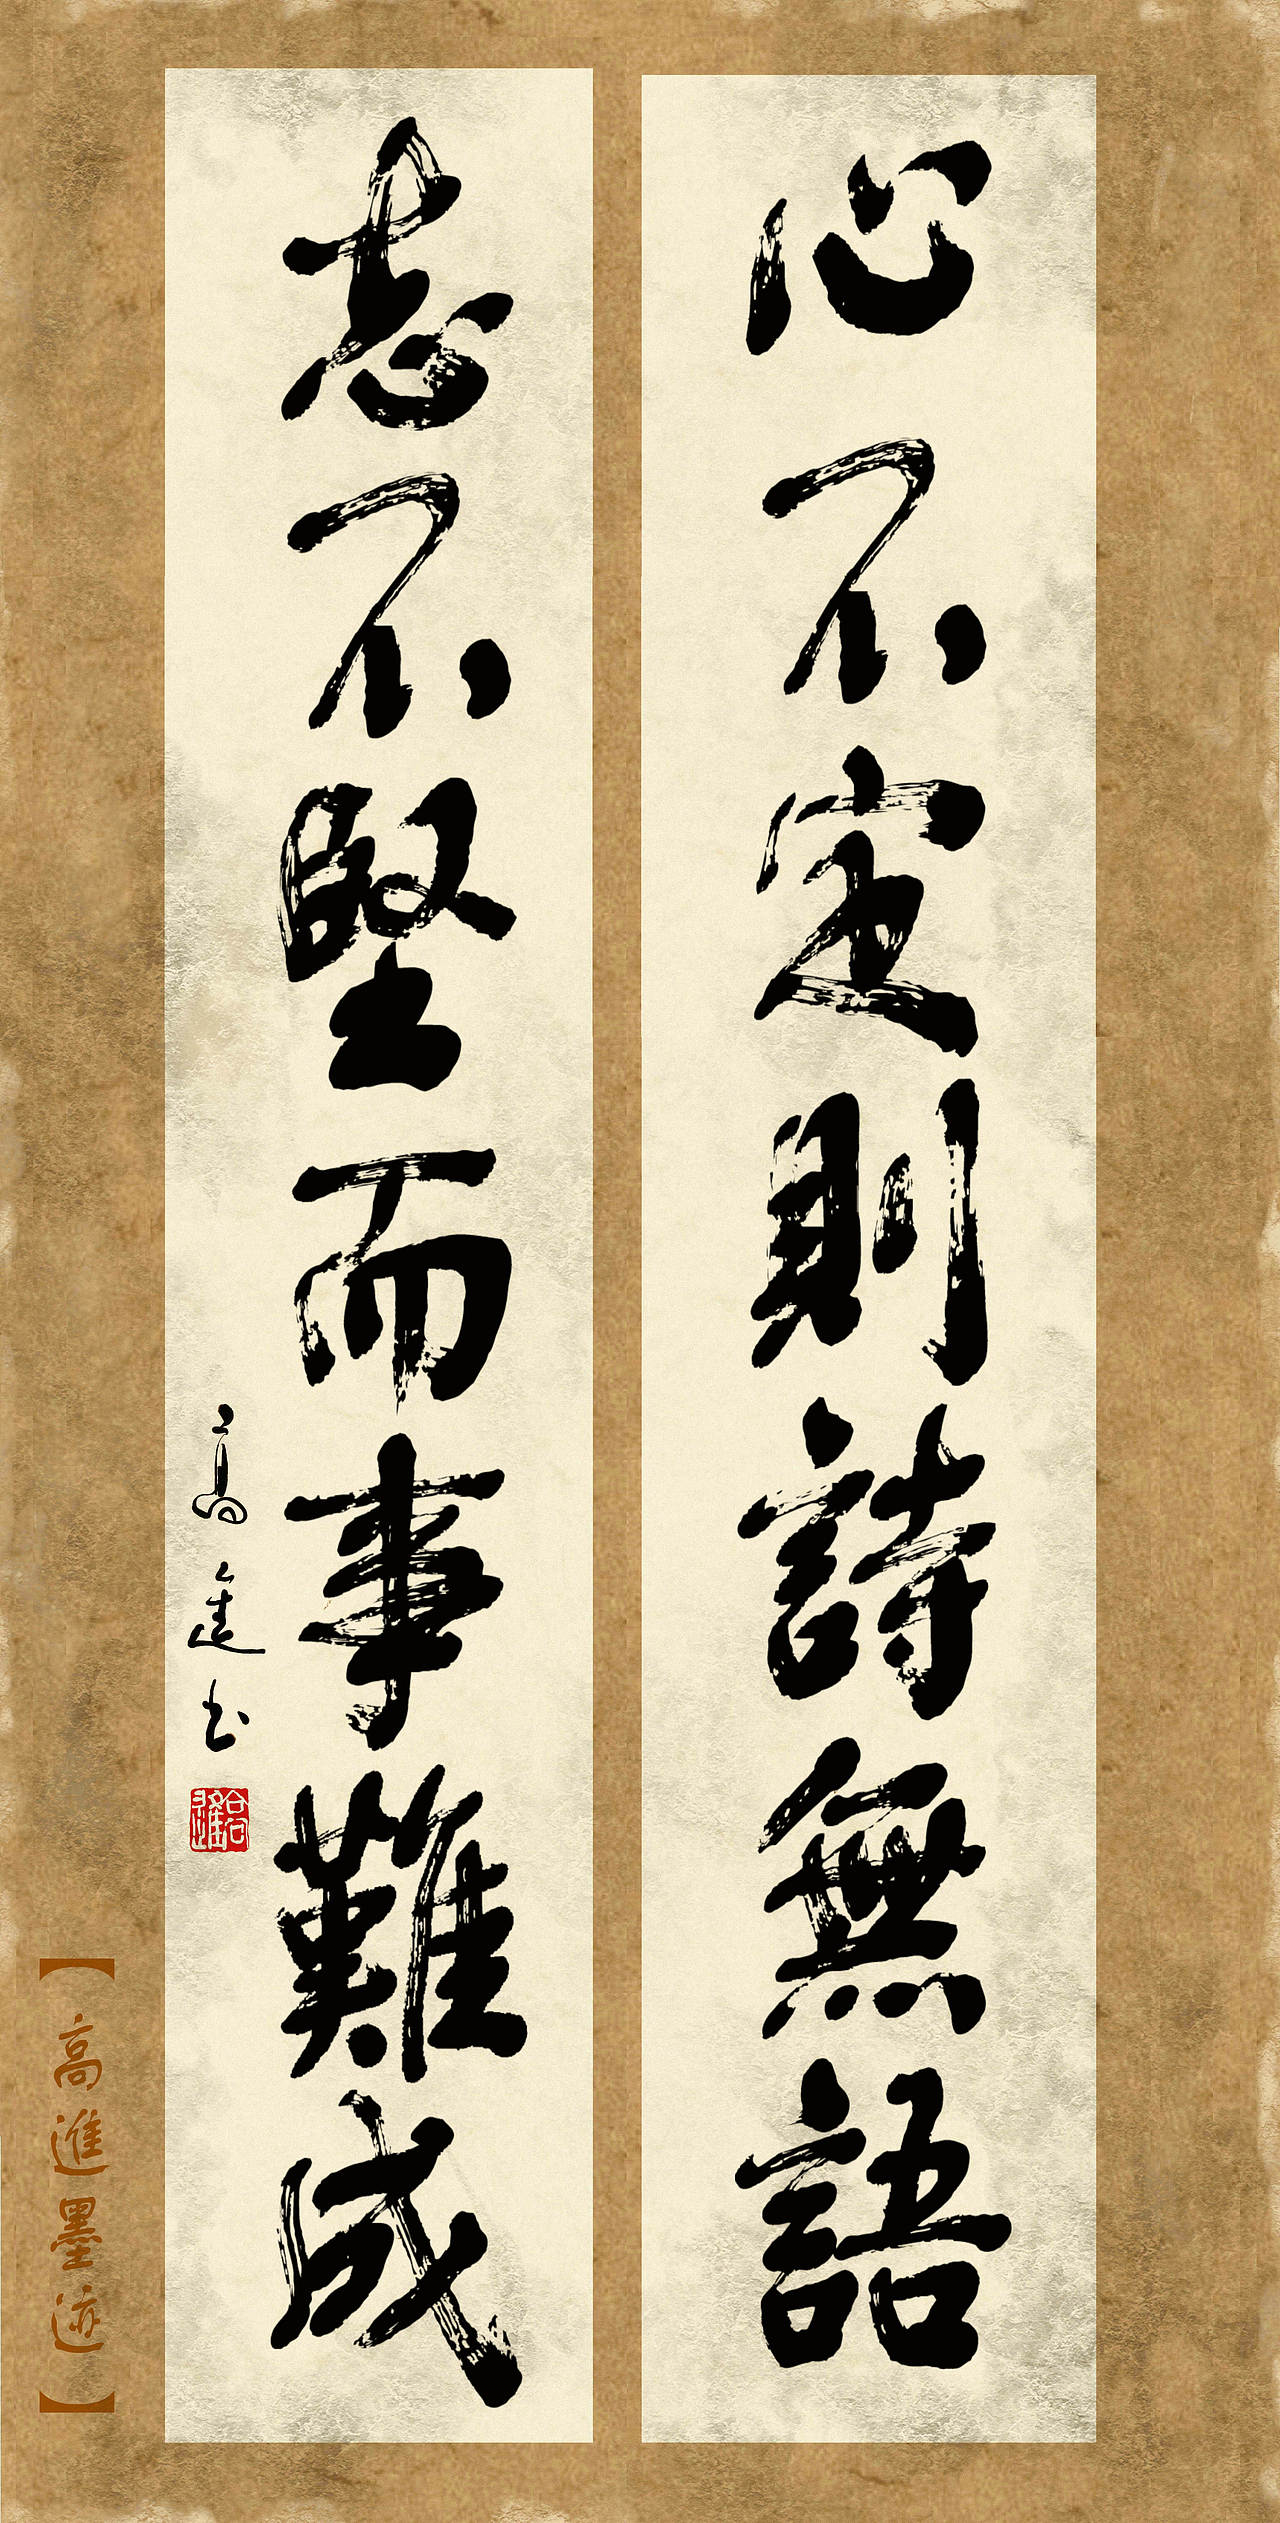 心不定則詩無語
志不堅而事難成
高進书
【高進墨迹】